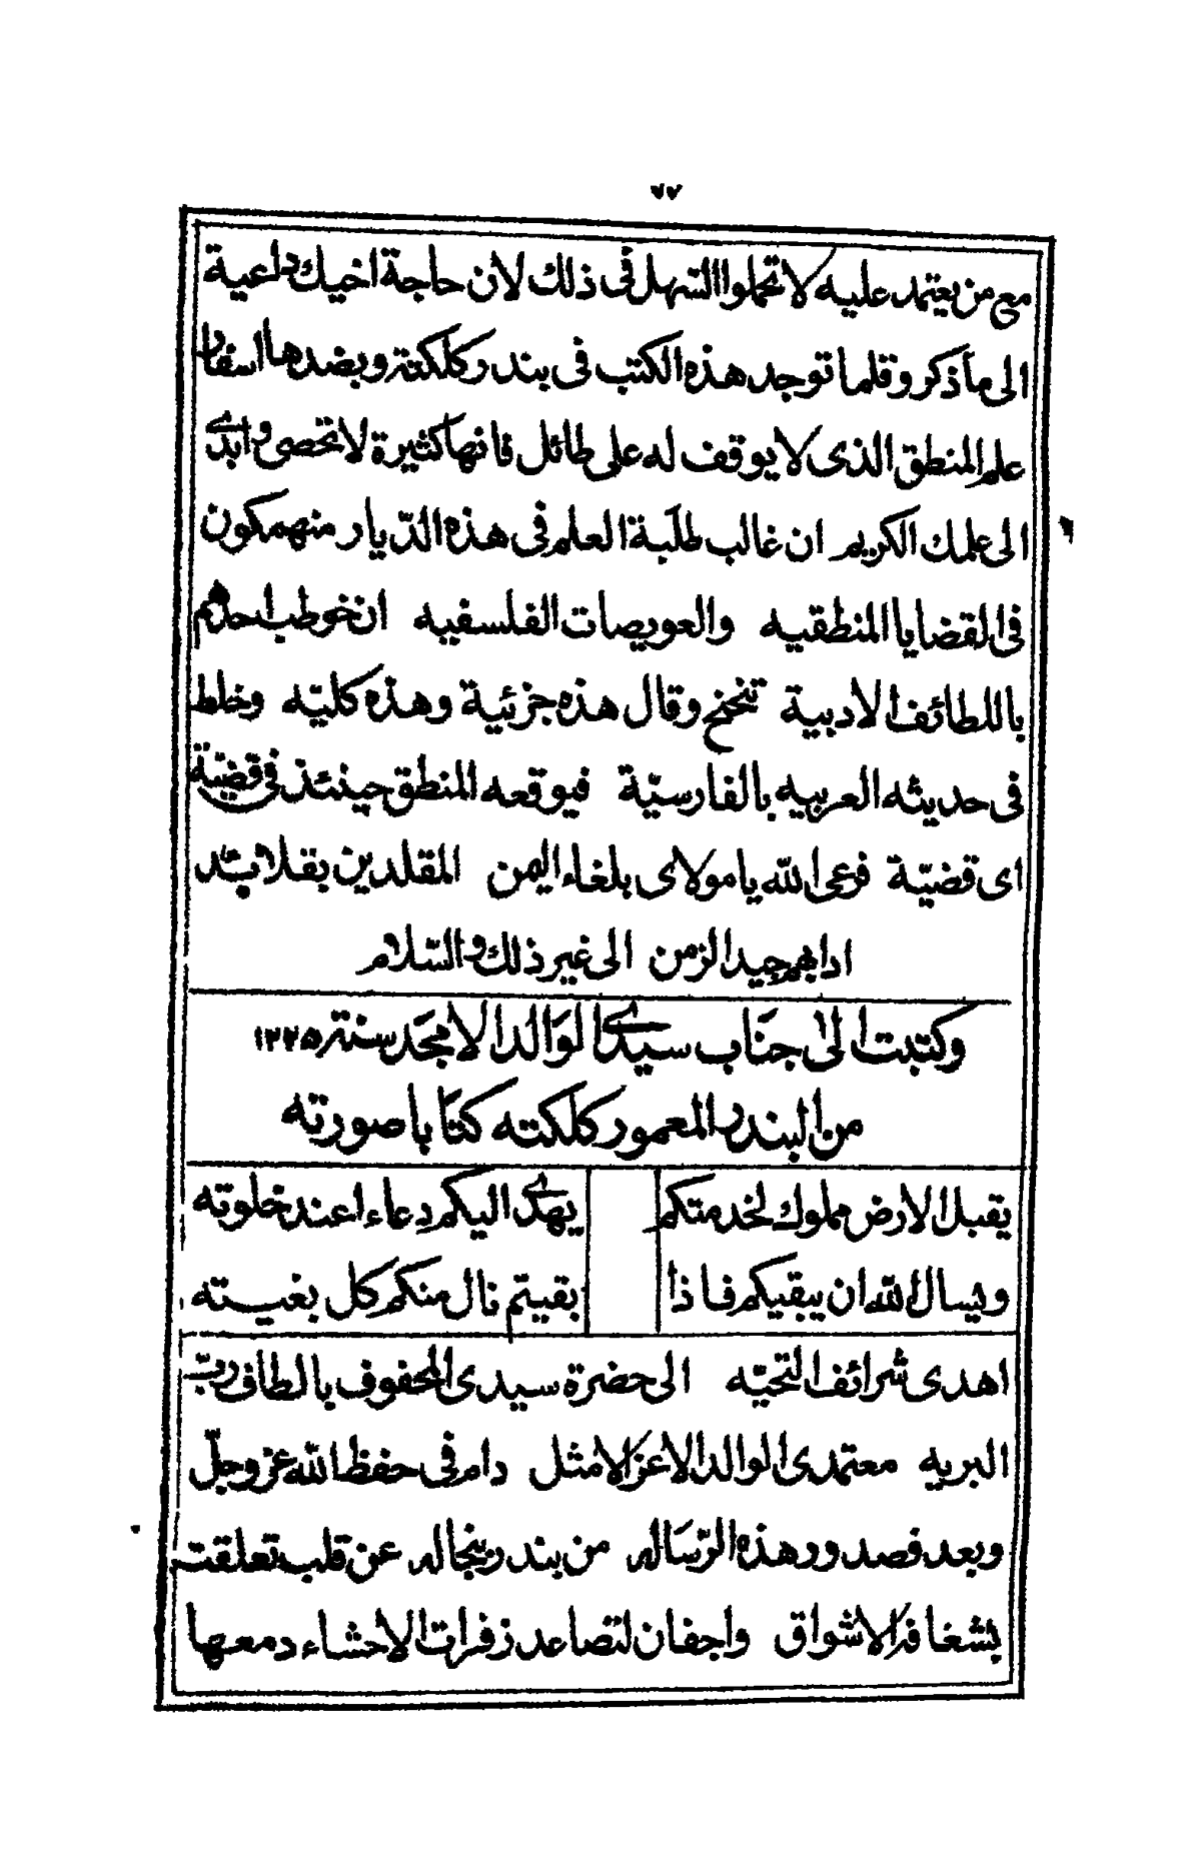 ٧٧
مع من يعتمد عليه لا تحملوا التسهل فى ذلك لان حاجة اخيك داعية
الى ما ذكر وقلما توجد هذه الكتب فى بندر كلكته وبضدها اسفار
علم المنطق الذى لا يوقف له على طائل فانها كثيرة لا تحصى وابدى
الى علمك الكريم ان غالب طلبة العلم فى هذه الديار منهمكون
فى القضايا المنطقيه والعويصات الفلسفيه ان خوطب احدهم
باللطائف الادبية تنحنح وقال هذه جزئية وهذه كليّه وخلط
فى حديثه العربيه بالفارسيّة فيوقعه المنطق حينئذ فى قضيّة
اى قضيّة فرعى الله يا مولاى بلغاء اليمن المقلدين بقلائد
ادابهم جيد الزمن الى غير ذلك والسّلام
وكتبت الى جناب سيدى الوالد الامجد سنة ١٢٢٥
من البندر المعمور كلكته كتابا صورته
يقبل الارض مملوك لخدمتكم يهدى اليكم دعاء اعند خلوته
ويسال الله ان يبقيكم فاذا بقيتم نال منكم كل بغيته
اهدى شرائف التحيّه الى حضرة سيدى المحفوف بالطاف ربّ
البريه معتمدى الوالد الاعز الامثل دام فى حفظ الله عز وجلّ
وبعد فصدور هذه الرّساله من بندر بنجاله عن قلب تعلقت
بشغافه الاشواق واجفان لتصاعد زفرات الاحشاء دمعها